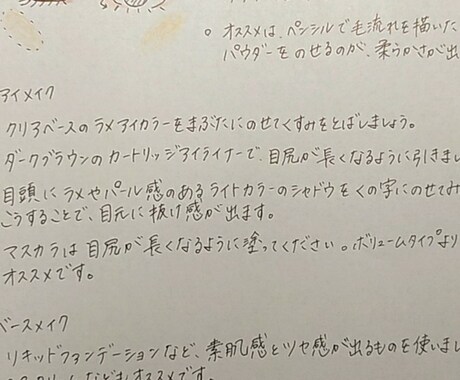 ○ オススメは、ペンシルで毛流れを描いた
パウダーをのせるのが、柔らかさが出
アイメイク
クリアベースのラメアイカラーをまぶたにのせてくすみをとばしましょう。
ダークブラウンのカートリッジアイライナーで、目尻が長くなるように引きまし
目頭にラメやパール感のあるライトカラーのシャドウをくの字にのせてみ
こうすることで、目元に抜け感が出ます。
マスカラは目尻が長くなるように塗ってください。ボリュームタイプより
オススメです。
ベースメイク
リキッドファンデーションなど、素肌感とツヤ感が出るものを使いまし
などもオススメです。